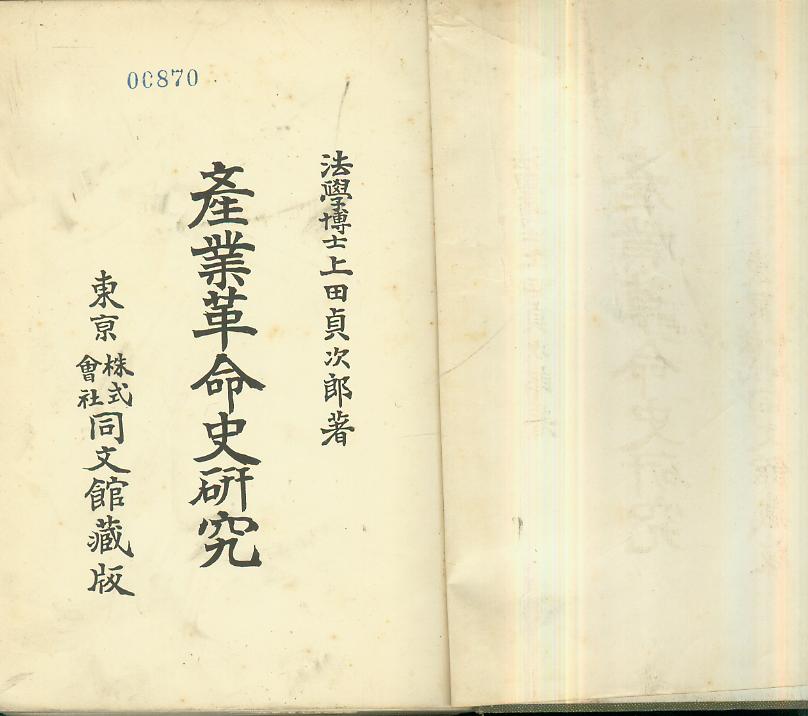 00870
法學博士上田貞次郎著
產業革命史研究
東京株式會社同文館藏版